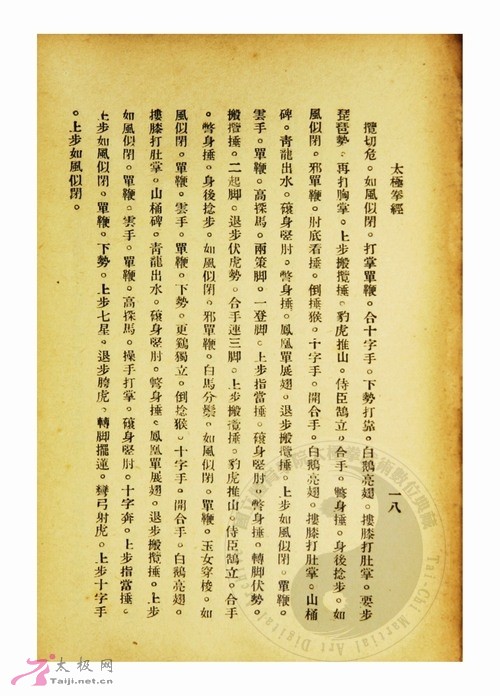 太極拳經
一八
攬切危。如風似閉。打掌單鞭。合十字手。下勢打靠。白鵝亮翅。摟膝打肚掌。要步
琵琶勢。再打胸掌。上步搬攬捶。豹虎推山。侍臣鵠立。合手。彆身捶。身後捻步。如
風似閉。邪單鞭。肘底看捶。倒捶猴。十字手。開合手。白鵝亮翅。摟膝打肚掌。山桶
碑。靑龍出水。磙身竪肘。彆身捶。鳳凰單展翅。退步搬攬捶。上步如風似閉。單鞭。
雲手。單鞭。高探馬。兩策脚。一登脚。上步指當捶。磙身竪肘。彆身捶。轉脚伏勢。
搬攬捶。二起脚。退步伏虎勢。合手連三脚。上步搬攬捶。豹虎推山。侍臣鵠立。合手
。彆身捶。身後捻步。如風似閉。邪單鞭。白馬分鬃。如風似閉。單鞭。玉女穿梭。如
風似閉。單鞭。雲手。單鞭。下勢。更鷄獨立。倒捻猴。十字手。開合手。白鵝亮翅。
摟膝打肚掌。山桶碑。靑龍出水。磙身竪肘。彆身捶。鳳凰單展翅。退步搬攬捶。上步
如風似閉。單鞭。雲手。單鞭。高探馬。操手打掌。磙身竪肘。十字奔。上步指當捶。
上步如風似閉。單鞭。下勢。上步七星。退步胯虎。轉脚擺蓮。彎弓射虎。上步十字手
。上步如風似閉。
太极网
Taiji.net.cn
Tai Chi Martial Art Digital